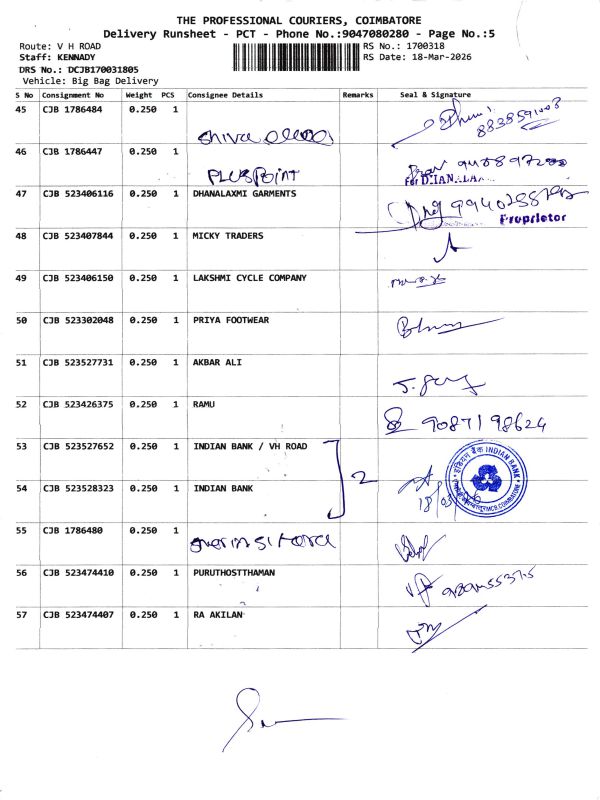 THE PROFESSIONAL COURIERS, COIMBATORE
Delivery Runsheet - PCT - Phone No.:9047080280 - Page No.:5
Route: V H ROAD
Staff: KENNADY
DRS No.: DCJB170031805
Vehicle: Big Bag Delivery
RS No.: 1700318
RS Date: 18-Mar-2026
S No Consignment No Weight PCS Consignee Details Remarks Seal & Signature
45 CJB 1786484 0.250 1 8838591008
46 CJB 1786447 0.250 1 PLUS POINT
For DHANALAX
47 CJB 523406116 0.250 1 DHANALAXMI GARMENTS
Proprietor
48 CJB 523407844 0.250 1 MICKY TRADERS
49 CJB 523406150 0.250 1 LAKSHMI CYCLE COMPANY
50 CJB 523302048 0.250 1 PRIYA FOOTWEAR
51 CJB 523527731 0.250 1 AKBAR ALI
52 CJB 523426375 0.250 1 RAMU 9087198624
53 CJB 523527652 0.250 1 INDIAN BANK / VH ROAD
2
इंडियन बैंक INDIAN BANK
COIMBATORE
54 CJB 523528323 0.250 1 INDIAN BANK
18/03
55 CJB 1786480 0.250 1
56 CJB 523474410 0.250 1 PURUTHOSTTHAMAN
57 CJB 523474407 0.250 1 RA AKILAN